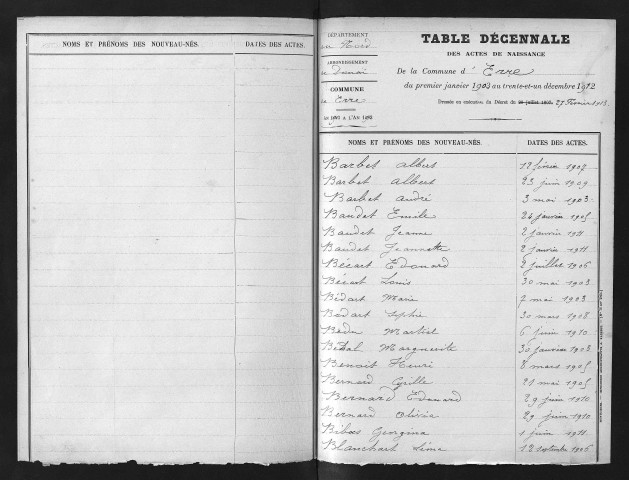 NOMS ET PRÉNOMS DES NOUVEAU-NÉS. DATES DES ACTES.
DÉPARTEMENT
du Nord
ARRONDISSEMENT
de Douai
COMMUNE
d'Erre
TABLE DÉCENNALE
DES ACTES DE NAISSANCE
De la Commune d'Erre
du premier janvier 1903 au trente-et-un décembre 1912
Dressée en exécution du Décret du 27 Février 1913
NOMS ET PRÉNOMS DES NOUVEAU-NÉS. DATES DES ACTES.
Barbet Albert 12 février 1907
Barbet Albert 23 juin 1909
Barbet André 3 mai 1903
Baudet Emile 24 janvier 1905
Baudet Jeanne 2 janvier 1911
Baudet Jeannette 2 janvier 1911
Bécart Edouard 2 juillet 1906
Bécart Louis 30 mai 1903
Bédart Marie 7 mai 1903
Bédart Sophie 30 mars 1908
Bédu Martial 6 juin 1910
Marguerite 30 janvier 1903
Benoit Henri 8 mars 1905
Bernard 21 mai 1905
Bernard Edouard 29 juin 1910
Bernard Olivia 29 juin 1910
Georgina 1 juin 1911
Blanchart 12 septembre 1906